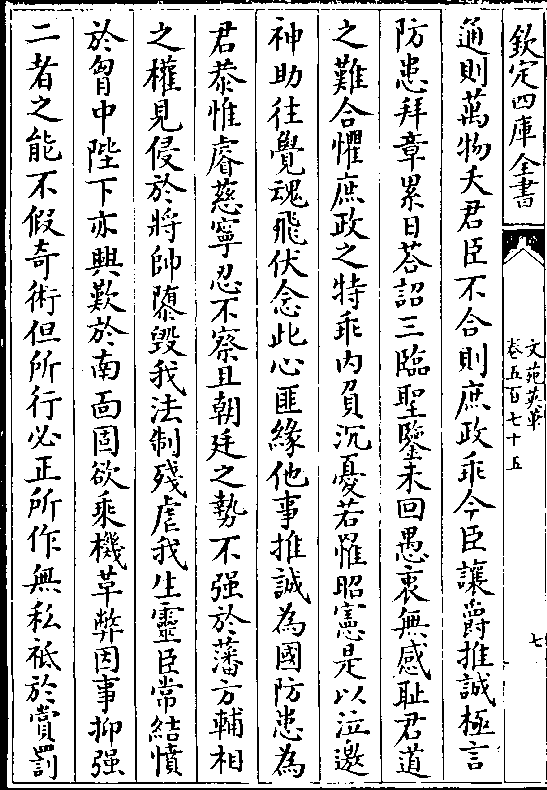 欽定四庫全書
文苑英華
卷五百七十五
七
通則萬物夭君臣不合則庶政乖今臣讓爵推誠極言
防患拜章累日荅詔三臨聖鑒未回愚衷無感耻君道
之難合懼庶政之特乖内負沉憂若罹昭憲是以泣邀
神助往覺魂飛伏念此心匪緣他事推誠為國防患為
君恭惟睿慈寧忍不察且朝廷之勢不强於藩方輔相
之權見侵於將帥隳毀我法制殘虐我生靈臣常結憤
於胷中陛下亦興歎於南面固欲乘機草弊因事抑强
二者之能不假奇術但所行必正所作無私祗於賞罰